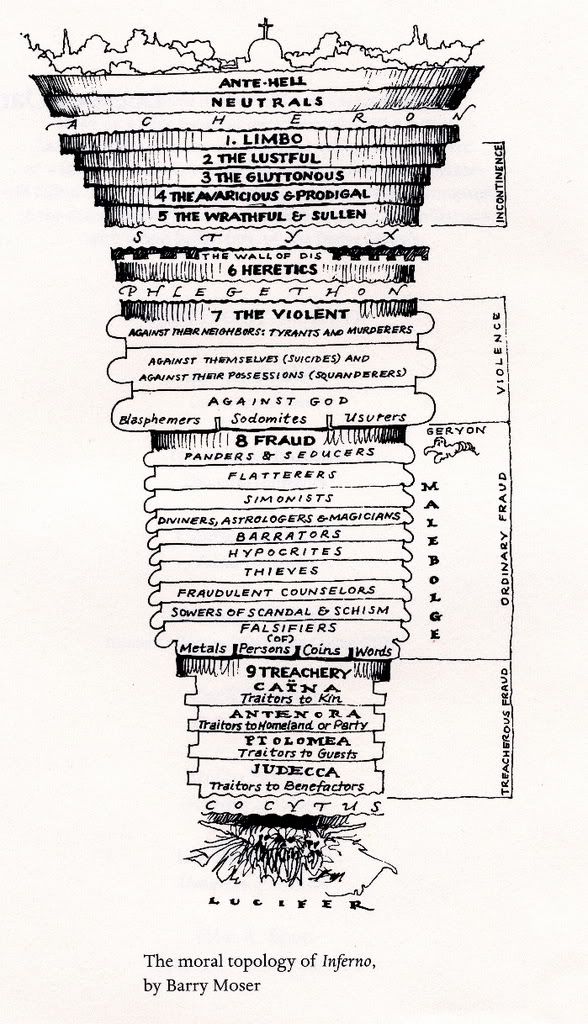 ANTE-HELL
NEUTRALS
ACHERON
1. LIMBO
2 THE LUSTFUL
3 THE GLUTTONOUS
4 THE AVARICIOUS & PRODIGAL
5 THE WRATHFUL & SULLEN
INCONTINENCE
STYX
THE WALL OF DIS
6 HERETICS
PHLEGETHON
7 THE VIOLENT
AGAINST THEIR NEIGHBORS: TYRANTS AND MURDERERS
AGAINST THEMSELVES (SUICIDES) AND
AGAINST THEIR POSSESSIONS (SQUANDERERS)
AGAINST GOD
Blasphemers Sodomites Usurers
VIOLENCE
8 FRAUD
GERYON
PANDERS & SEDUCERS
FLATTERERS
SIMONISTS
DIVINERS, ASTROLOGERS & MAGICIANS
BARRATORS
HYPOCRITES
THIEVES
FRAUDULENT COUNSELORS
SOWERS OF SCANDAL & SCHISM
FALSIFIERS
(OF)
Metals Persons Coins Words
MALEBOLGE
ORDINARY FRAUD
9 TREACHERY
CAÏNA
Traitors to Kin
ANTENORA
Traitors to Homeland or Party
PTOLOMEA
Traitors to Guests
JUDECCA
Traitors to Benefactors
TREACHEROUS FRAUD
COCYTUS
LUCIFER
The moral topology of Inferno,
by Barry Moser